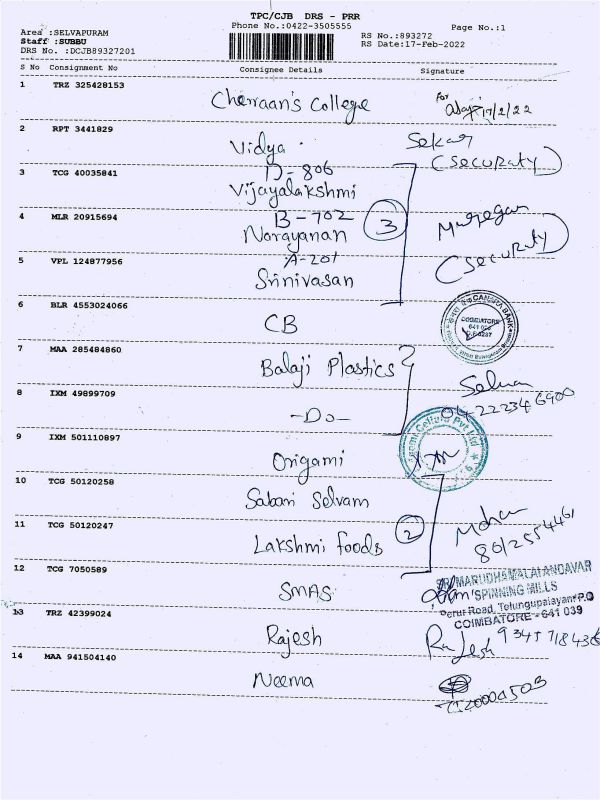 TPC/CJB DRS - PRR
Phone No.:0422-3505555
Page No.:1
Area :SELVAPURAM
Staff :SUBBU
DRS No. :DCJB89327201
RS No.:893272
RS Date:17-Feb-2022
S No Consignment No Consignee Details Signature
1 TRZ 325428153 Cherraan's College for 17/2/22
2 RPT 3441829 Vidya Sekar
(Security)
3 TCG 40035841 D-806
Vijayalakshmi
4 MLR 20915694 B-702
Narayanan 3 Murugan
(Security)
5 VPL 124877956 A-201
Srinivasan
6 BLR 4553024066 CB
CANARA BANK
COIMBATORE
7 MAA 285484860 Balaji Plastics
8 IXM 49899709 -Do- Selva
9 IXM 501110897 Origami
Cellulo Pvt Ltd
10 TCG 50120258 Sabari Selvam
11 TCG 50120247 Lakshmi foods 2 Mohan
12 TCG 7050589 SMAS
MARUDHAMALAI ANDAVAR
SPINNING MILLS
Perur Road, Telungupalayam P.O
COIMBATORE - 641 039
13 TRZ 42399024 Rajesh Rajesh
14 MAA 941504140 Neema